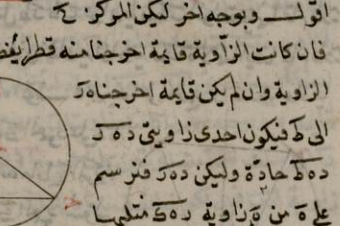 اقول وبوجه اخر ليكن المركز ح
فان كانت الزاوية قايمة اخرجنا منه قطرا
الزاوية وان لم يكن قايمة اخرجنا ه ز
الى ط فيكون احدى زاويتى د ه ز
د ه ط حادة وليكن د ه ز فنرسم
على ه من زاوية مثلها